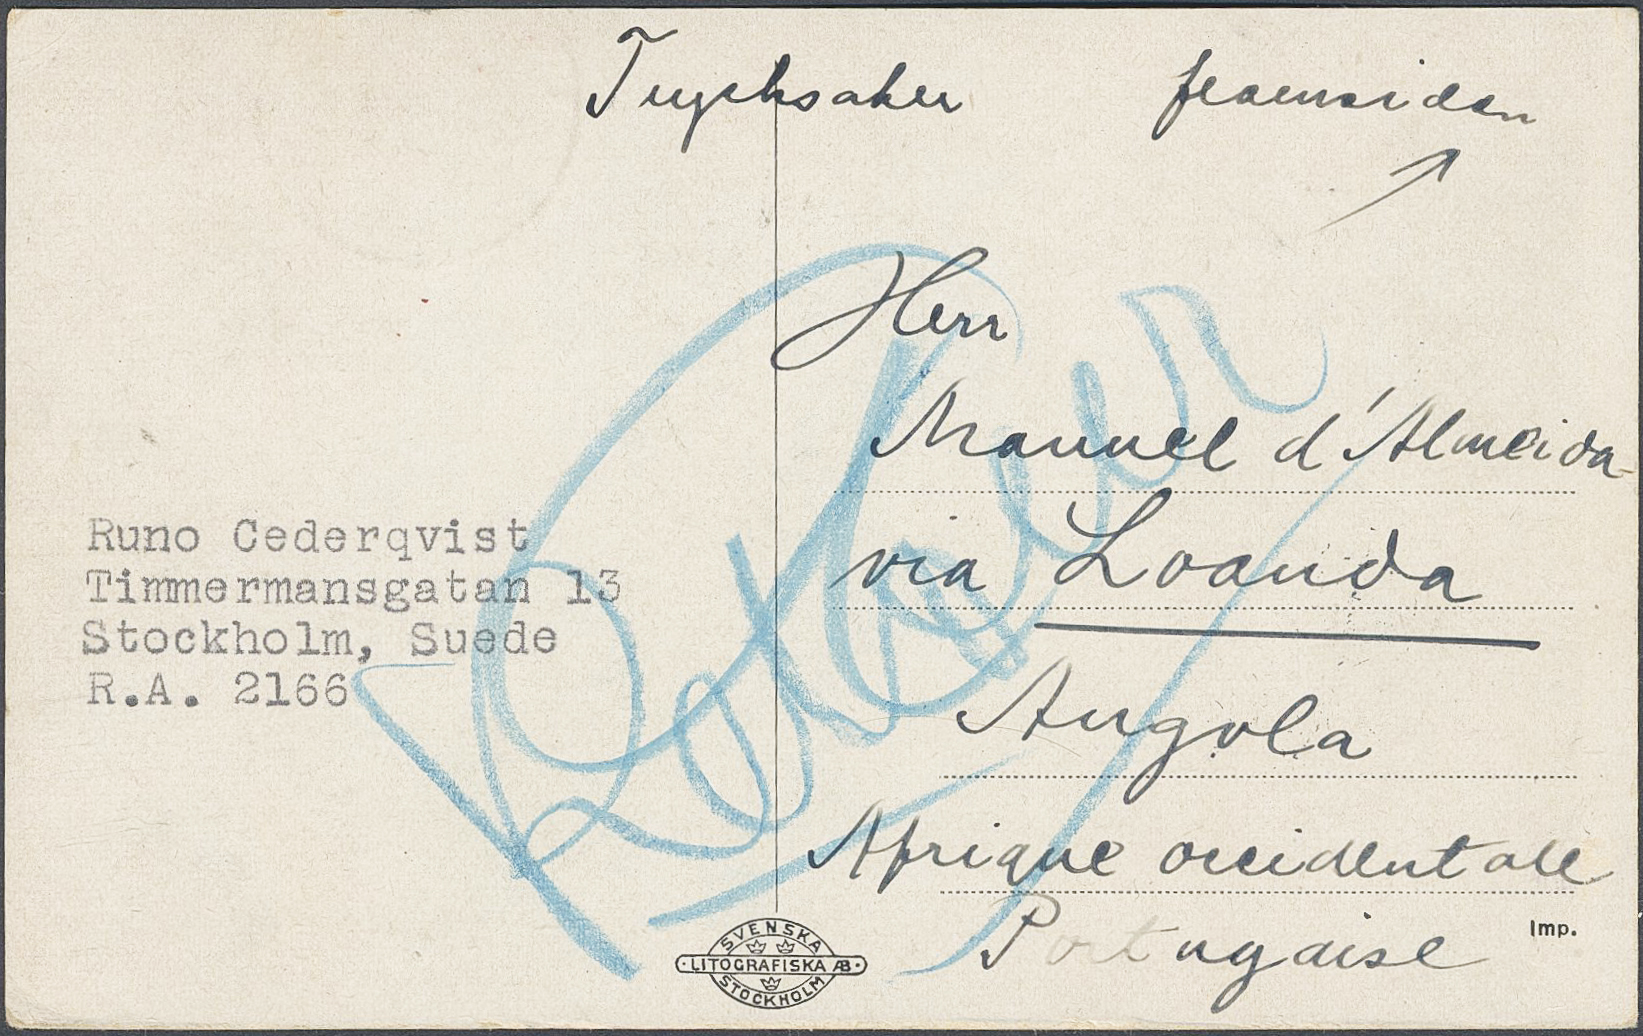 Trycksaker framsidan
Herr
Manuel d'Almeida
via Loanda
Angola
Afrique occidentale
Portugaise
Runo Cederqvist
Timmermansgatan 13
Stockholm, Suede
R.A. 2166
Retour
Imp.
SVENSKA
LITOGRAFISKA AB
STOCKHOLM